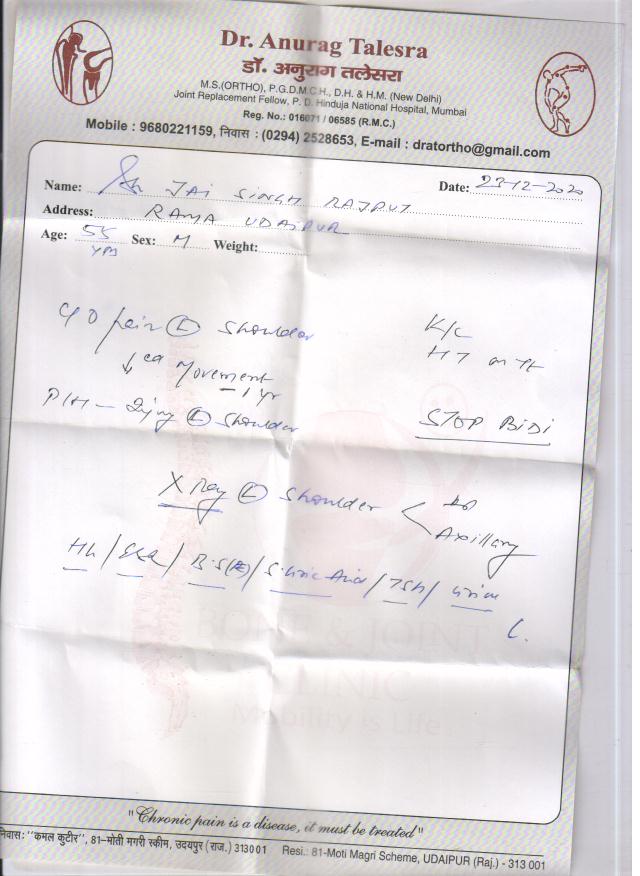 Dr. Anurag Talesra
डॉ. अनुराग तलेसरा
M.S.(ORTHO), P.G.D.M.C.H., D.H. & H.M. (New Delhi)
Joint Replacement Fellow, P. D. Hinduja National Hospital, Mumbai
Reg. No.: 016071 / 06585 (R.M.C.)
Mobile : 9680221159, निवास : (0294) 2528653, E-mail : dratortho@gmail.com
Name: Sh JAI SINGH RAJPUT Date: 23-12-2020
Address: RAMA UDAIPUR
Age: 55 yrs Sex: M Weight:
C/O pain (L) shoulder K/C
↓ed movement HT on Tt
– 1 yr
P/H – Injury (L) shoulder STOP BiDi
X Ray (L) shoulder < AP
Axillary
Hb / ESR / B.S(R) / S. Uric Acid / TSH / Urine
BONE & JOINT
CLINIC
Mobility is Life
"Chronic pain is a disease, it must be treated"
निवास: "कमल कुटीर", 81–मोती मगरी स्कीम, उदयपुर (राज.) 313001 Resi.: 81-Moti Magri Scheme, UDAIPUR (Raj.) - 313 001